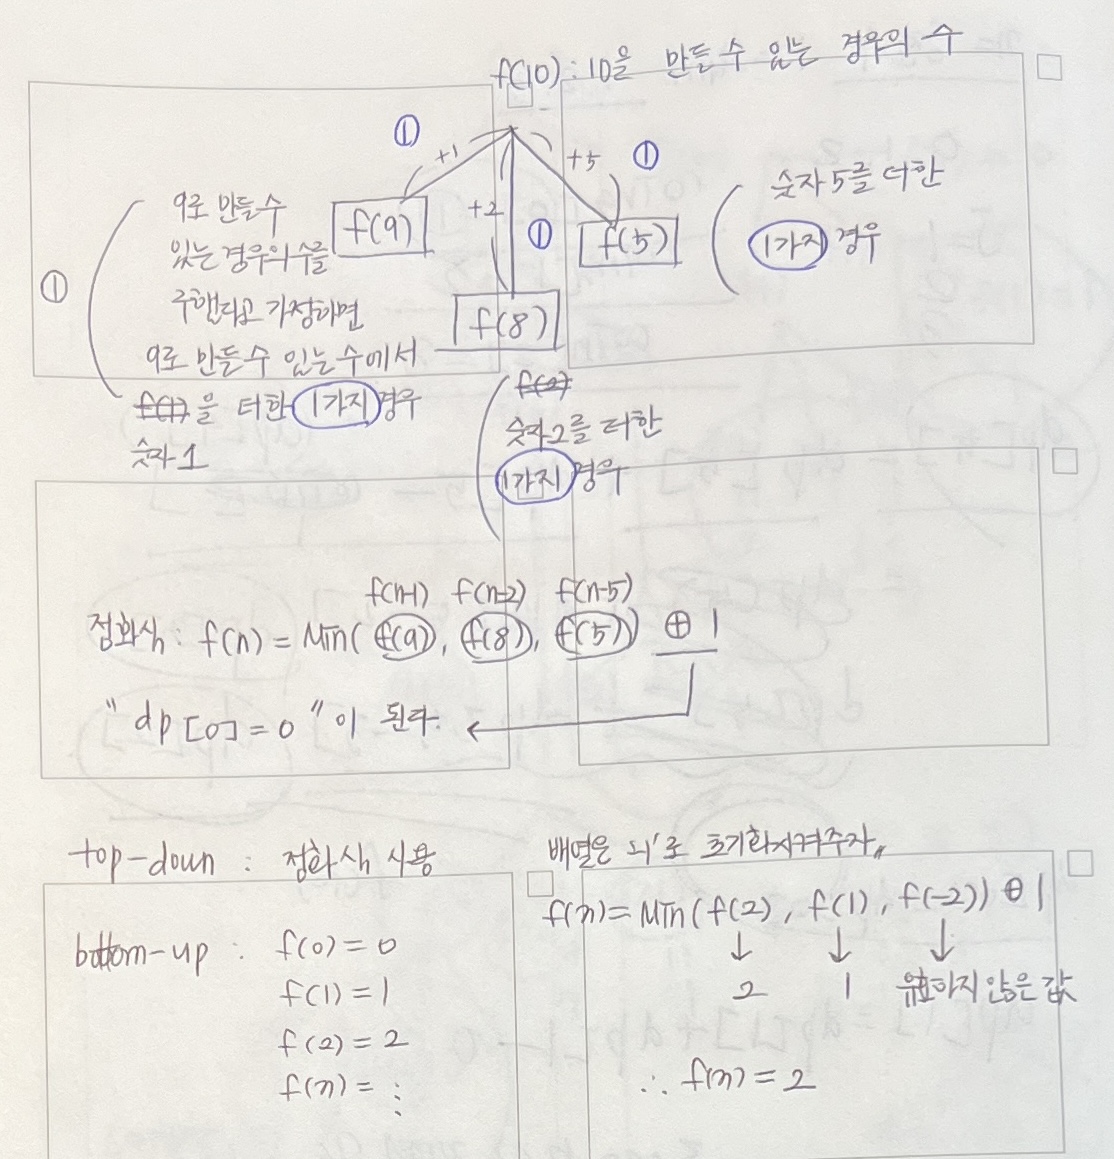 f(10) : 10을 만들 수 있는 경우의 수
① +1 +2 ① +5 ①
f(9) f(8) f(5)
① 9로 만들 수
있는 경우의 수를
구했다고 가정하면
9로 만들 수 있는 수에서
f(1)을 더한 1가지 경우
숫자 1
f(2)
숫자 2를 더한
1가지 경우
숫자 5를 더한
1가지 경우
f(n-1) f(n-2) f(n-5)
점화식 : f(n) = Min( f(9), f(8), f(5)) ⊕ 1
"dp[0] = 0"이 된다.
top-down : 점화식 사용
bottom-up : f(0) = 0
f(1) = 1
f(2) = 2
f(3) = ⋮
배열은 -1로 초기화시켜주자,,
f(3) = Min(f(2), f(1), f(-2)) ⊕ 1
↓ ↓ ↓
2 1 유효하지 않은 값
∴ f(3) = 2